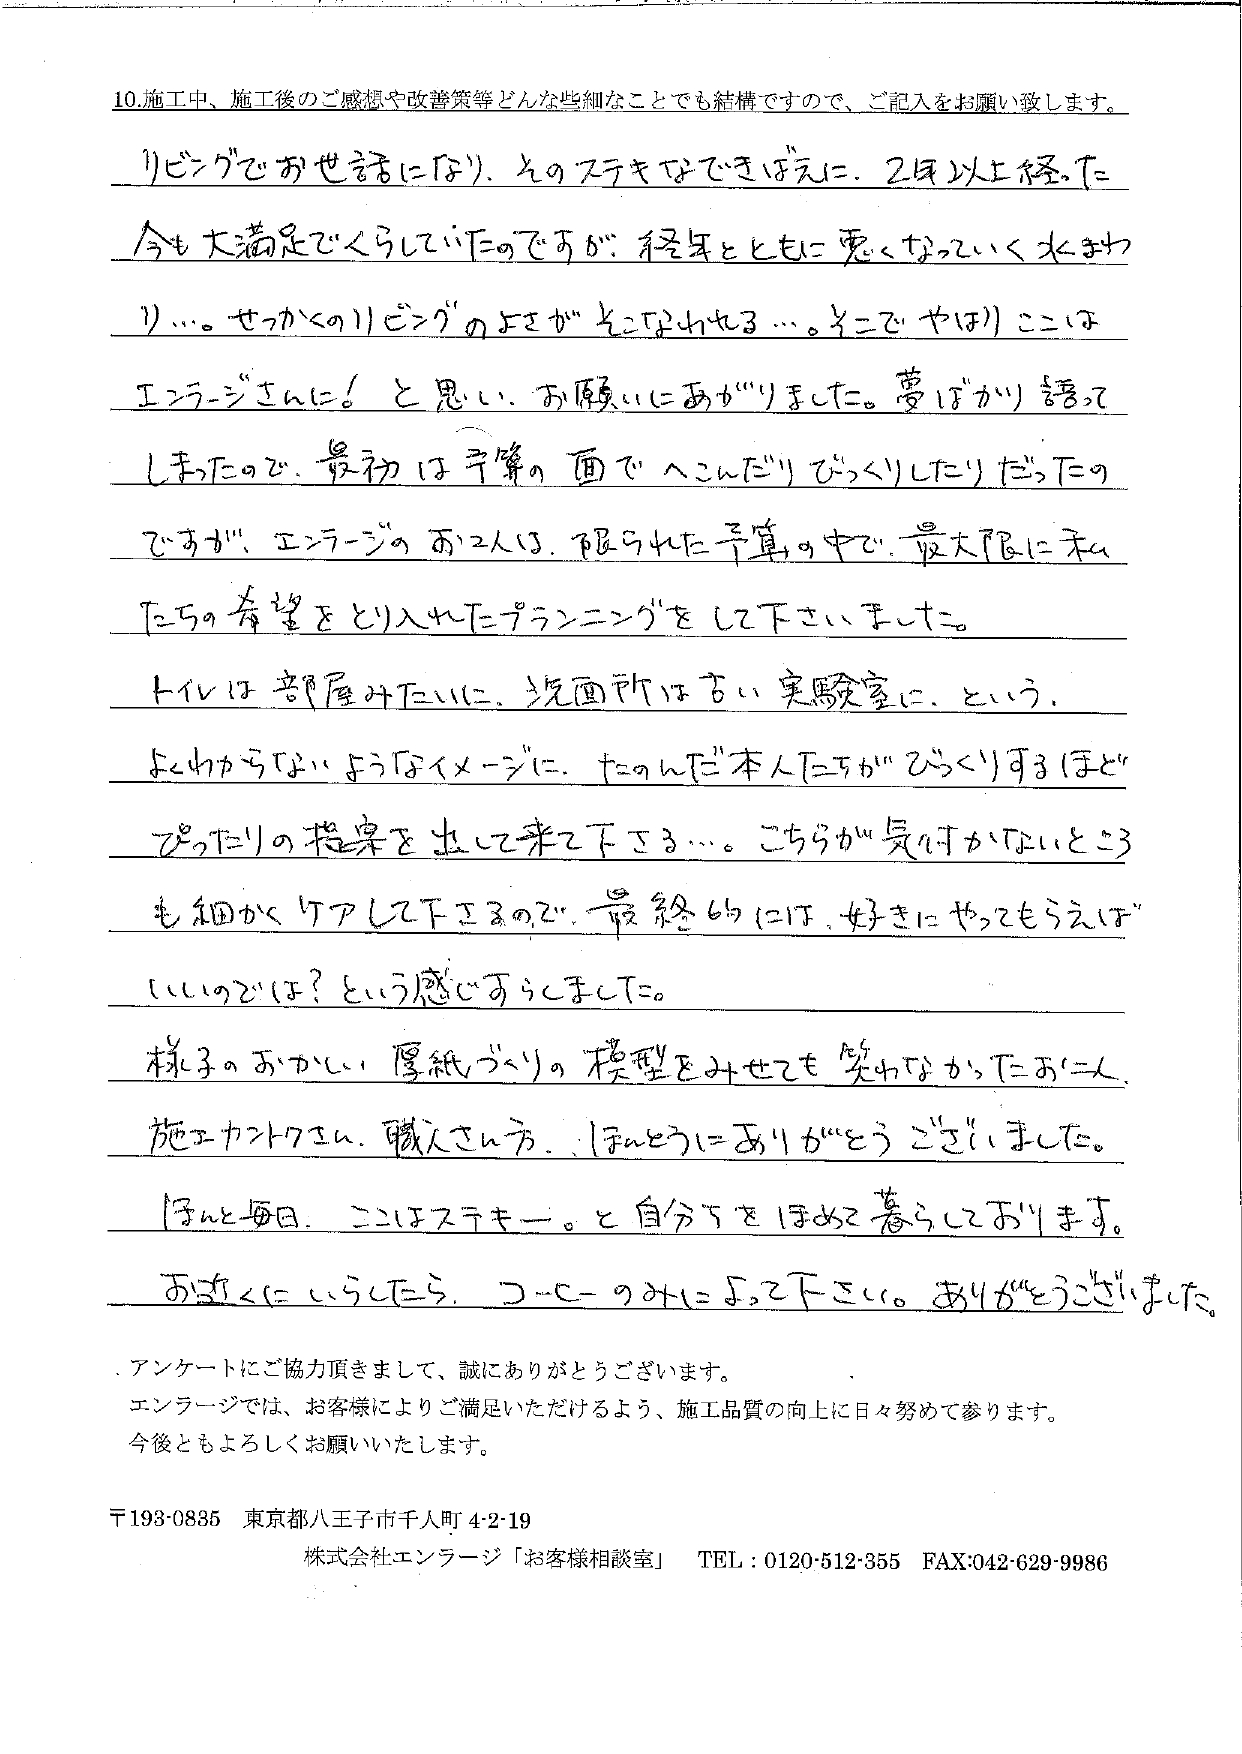 10.施工中、施工後のご感想や改善策等どんな些細なことでも結構ですので、ご記入をお願い致します。
リビングでお世話になり、そのステキなできばえに、2年以上経った
今も大満足でくらしていたのですが、経年とともに悪くなっていく水まわ
り…。せっかくのリビングのよさがそこなわれる…。そこでやはりここは
エンラージさんに!と思い、お願いにあがりました。夢ばかり語って
しまったので、最初は予算の面でへこんだりびっくりしたりだったの
ですが、エンラージのお二人は、限られた予算の中で、最大限に私
たちの希望をとり入れたプランニングをして下さいました。
トイレは部屋みたいに、洗面所は古い実験室に、という、
よくわからないようなイメージに、たのんだ本人たちがびっくりするほど
ぴったりの提案を出して来て下さる…。こちらが気付かないところ
も細かくケアして下さるので、最終的には、好きにやってもらえば
いいのでは?という感じすらしました。
様子のおかしい厚紙づくりの模型をみせても笑わなかったお二人、
施工カントクさん、職人さん方、ほんとうにありがとうございました。
ほんと毎日、ここはステキー。と自分ちをほめて暮らしております。
お近くにいらしたら、コーヒーのみによって下さい。ありがとうございました。
アンケートにご協力頂きまして、誠にありがとうございます。
エンラージでは、お客様によりご満足いただけるよう、施工品質の向上に日々努めて参ります。
今後ともよろしくお願いいたします。
〒193-0835 東京都八王子市千人町 4-2-19
株式会社エンラージ「お客様相談室」 TEL：0120-512-355 FAX:042-629-9986